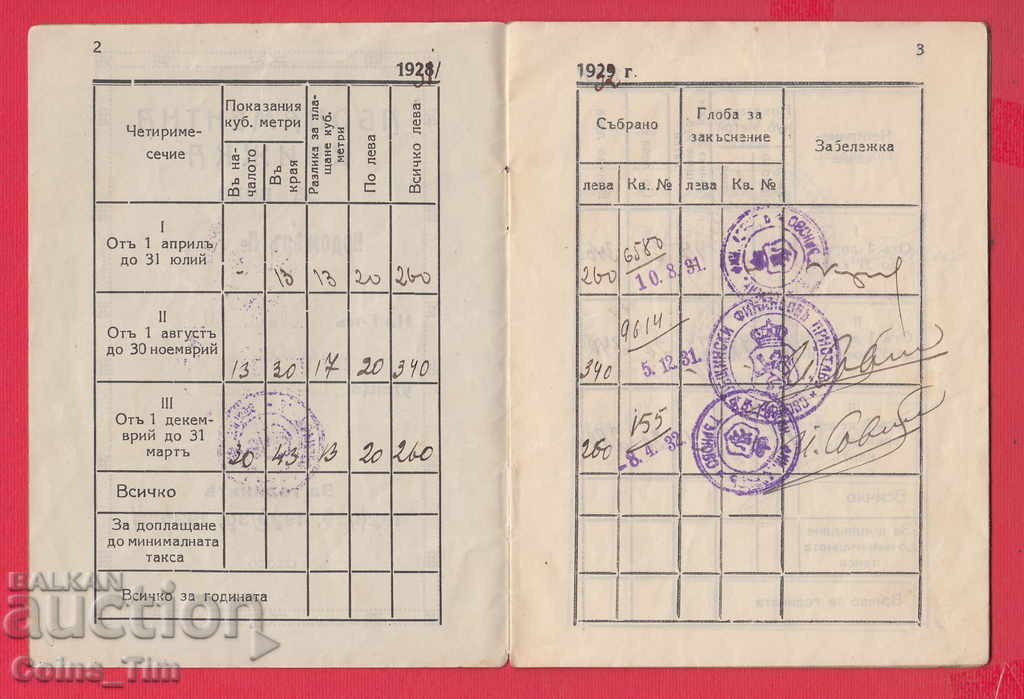 2
1928/
31
Четириме-
сечие
Показания
куб. метри
Въ на-
чалото
Въ
края
Разлика за пла-
щане куб.
метри
По лева
Всичко лева
I
Отъ 1 априлъ
до 31 юлий
13 13 20 260
II
Отъ 1 августъ
до 30 ноемврий
13 30 17 20 340
III
Отъ 1 декем-
врий до 31
мартъ
30 43 13 20 260
Всичко
За доплащане
до минималната
такса
Всичко за годината
3
1929 г.
32
Събрано
Глоба за
закъснение
Забележка
лева Кв. № лева Кв. №
260 6580
10.8.31.
340 9614
5.12.31.
260 155
-8.4.32.
BALKAN
auction
Coins_Tim